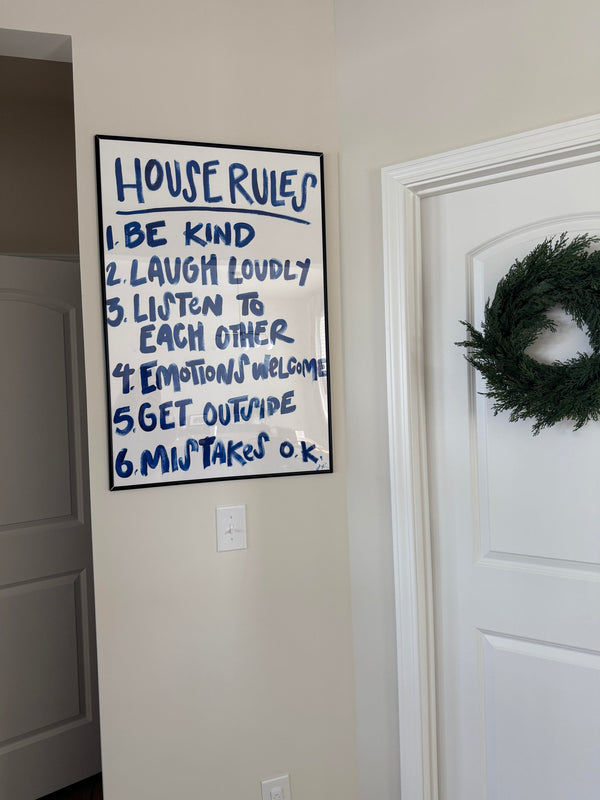 HOUSE RULES
1. BE KIND
2. LAUGH LOUDLY
3. LISTEN TO
EACH OTHER
4. EMOTIONS WELCOME
5. GET OUTSIDE
6. MISTAKES O.K.